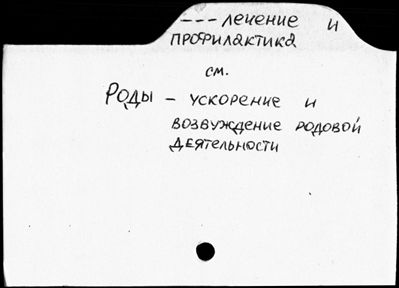 --- лечение и
профилактика
см.
Роды - ускорение и
возвуждение родовой
деятельности